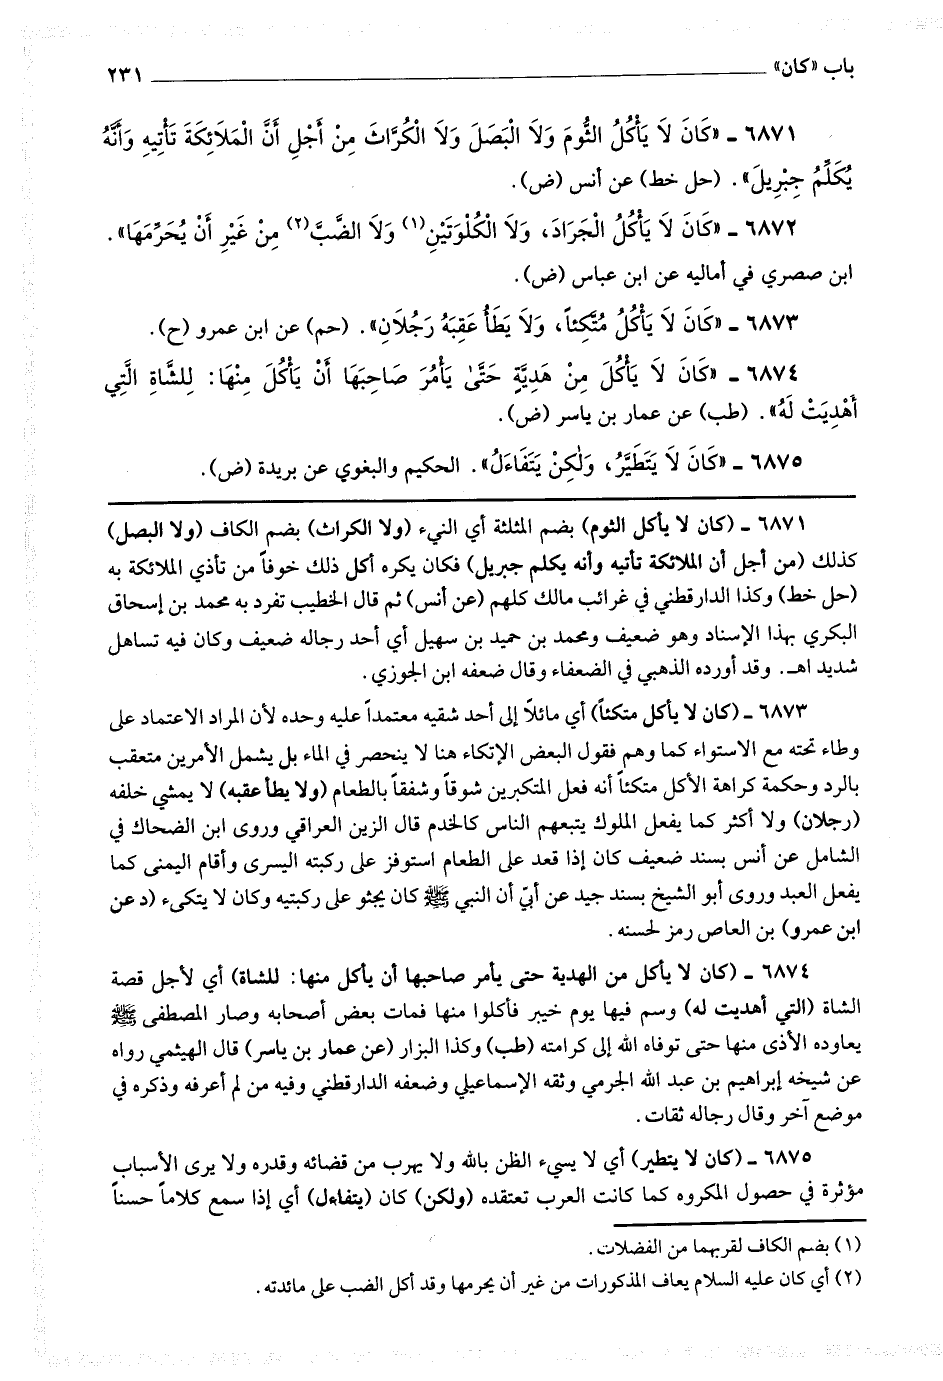 باب «كان» ٢٣١
٦٨٧١ ـ «كَانَ لَا يَأْكُلُ الثُّومَ وَلَا الْبَصَلَ وَلَا الْكُرَّاثَ مِنْ أَجْلِ أَنَّ الْمَلَائِكَةَ تَأْتِيهِ وَأَنَّهُ
يُكَلِّمُ جِبْرِيلَ». (حل خط) عن أنس (ض).
٦٨٧٢ ـ «كَانَ لَا يَأْكُلُ الْجَرَادَ، وَلَا الْكُلْوَتَيْنِ(١) وَلَا الضَّبَّ(٢) مِنْ غَيْرِ أَنْ يُحَرِّمَهَا».
ابن صصري في أماليه عن ابن عباس (ض).
٦٨٧٣ ـ «كَانَ لَا يَأْكُلُ مُتَّكِئاً، وَلَا يَطَأُ عَقِبَهُ رَجُلَانِ». (حم) عن ابن عمرو (ح).
٦٨٧٤ ـ «كَانَ لَا يَأْكُلُ مِنْ هَدِيَّةٍ حَتَّىٰ يَأْمُرَ صَاحِبَهَا أَنْ يَأْكُلَ مِنْهَا: لِلشَّاةِ الَّتِي
أُهْدِيَتْ لَهُ». (طب) عن عمار بن ياسر (ض).
٦٨٧٥ ـ «كَانَ لَا يَتَطَيَّرُ، وَلَٰكِنْ يَتَفَاءَلُ». الحكيم والبغوي عن بريدة (ض).
٦٨٧١ ـ (كان لا يأكل الثوم) بضم المثلثة أي النيء (ولا الكراث) بضم الكاف (ولا البصل)
كذلك (من أجل أن الملائكة تأتيه وأنه يكلم جبريل) فكان يكره أكل ذلك خوفاً من تأذي الملائكة به
(حل خط) وكذا الدارقطني في غرائب مالك كلهم (عن أنس) ثم قال الخطيب تفرد به محمد بن إسحاق
البكري بهذا الإسناد وهو ضعيف ومحمد بن حميد بن سهيل أي أحد رجاله ضعيف وكان فيه تساهل
شديد اهـ. وقد أورده الذهبي في الضعفاء وقال ضعفه ابن الجوزي.
٦٨٧٣ ـ (كان لا يأكل متكئاً) أي مائلاً إلى أحد شقيه معتمداً عليه وحده لأن المراد الاعتماد على
وطاء تحته مع الاستواء كما وهم فقول البعض الإتكاء هنا لا ينحصر في الماء بل يشمل الأمرين متعقب
بالرد وحكمة كراهة الأكل متكئاً أنه فعل المتكبرين شوقاً وشفقاً بالطعام (ولا يطأ عقبه) لا يمشي خلفه
(رجلان) ولا أكثر كما يفعل الملوك يتبعهم الناس كالخدم قال الزين العراقي وروى ابن الضحاك في
الشامل عن أنس بسند ضعيف كان إذا قعد على الطعام استوفز على ركبته اليسرى وأقام اليمنى كما
يفعل العبد وروى أبو الشيخ بسند جيد عن أبيّ أن النبي ﷺ كان يجثو على ركبتيه وكان لا يتكىء (د عن
ابن عمرو) بن العاص رمز لحسنه.
٦٨٧٤ ـ (كان لا يأكل من الهدية حتى يأمر صاحبها أن يأكل منها: للشاة) أي لأجل قصة
الشاة (التي أهديت له) وسم فيها يوم خيبر فأكلوا منها فمات بعض أصحابه وصار المصطفى ﷺ
يعاوده الأذى منها حتى توفاه الله إلى كرامته (طب) وكذا البزار (عن عمار بن ياسر) قال الهيثمي رواه
عن شيخه إبراهيم بن عبد الله الجرمي وثقه الإسماعيلي وضعفه الدارقطني وفيه من لم أعرفه وذكره في
موضع آخر وقال رجاله ثقات.
٦٨٧٥ ـ (كان لا يتطير) أي لا يسيء الظن بالله ولا يهرب من قضائه وقدره ولا يرى الأسباب
مؤثرة في حصول المكروه كما كانت العرب تعتقده (ولكن) كان (يتفاءل) أي إذا سمع كلاماً حسناً
(١) بضم الكاف لقربهما من الفضلات.
(٢) أي كان عليه السلام يعاف المذكورات من غير أن يحرمها وقد أكل الضب على مائدته.